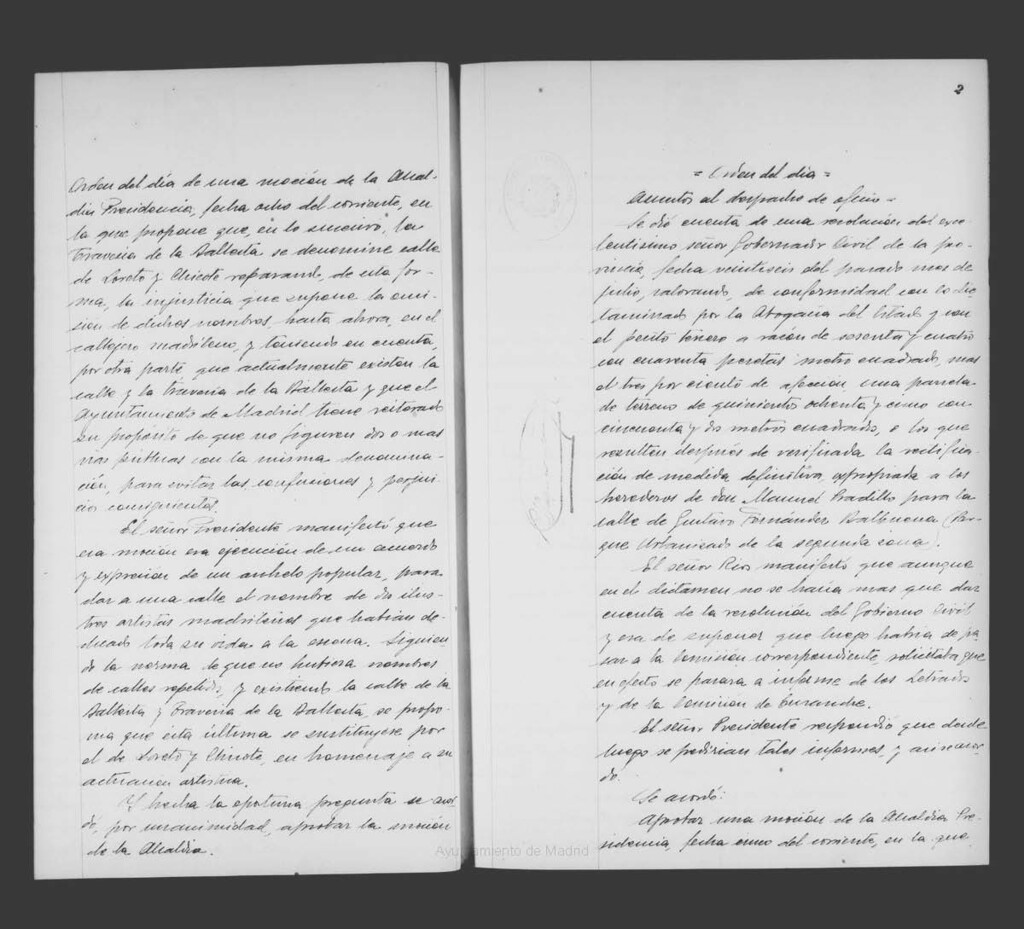 Orden del día de una moción de la Alcal-
día Presidencia, fecha ocho del corriente, en
la que propone que, en lo sucesivo, la
Travesía de la Ballesta se denomine calle
de Loreto y Chicote reparando, de esta for-
ma, la injusticia que supone la omi-
sión de dichos nombres, hasta ahora, en el
callejero madrileño, y teniendo en cuenta,
por otra parte que actualmente existen la
calle y la travesía de la Ballesta y que el
Ayuntamiento de Madrid tiene reiterado
su propósito de que no figuren dos o mas
vías públicas con la misma denomina-
ción, para evitar las confusiones y perjui-
cios consiguientes.
El señor Presidente manifestó que
esa moción era ejecución de un acuerdo
y expresión de un anhelo popular, para
dar a una calle el nombre de dos ilus-
tres artistas madrileños que habían de-
dicado toda su vida a la escena. Siguien-
do la norma de que no hubiera nombres
de calles repetidos, y existiendo la calle de la
Ballesta y Travesía de la Ballesta, se propo-
nía que esta última se sustituyese por
el de Loreto y Chicote, en homenaje a su
actuación artística.
Y hecha la oportuna pregunta se acor-
dó, por unanimidad, aprobar la moción
de la Alcaldía.
2
= Orden del día =
Asuntos al despacho de oficio =
Se dió cuenta de una resolución del exce-
lentísimo señor Gobernador Civil de la pro-
vincia, fecha veintiseis del pasado mes de
julio, valorando, de conformidad con lo dic-
taminado por la Abogacía del Estado y con
el perito tercero a razón de sesenta y cuatro
con cuarenta pesetas metro cuadrado, mas
el tres por ciento de afección una parcela
de terreno de quinientos ochenta y cinco con
cincuenta y dos metros cuadrados, o los que
resulten después de verificada la rectifica-
ción de medida definitiva, expropiada a los
herederos de don Manuel Pradillo para la
calle de Gustavo Fernández Balbuena (Par-
que Urbanizado de la segunda zona).
El señor Rios manifestó que aunque
en el dictamen no se hacía mas que dar
cuenta de la resolución del Gobierno Civil
y era de suponer que luego había de pa-
sar a la Comisión correspondiente, solicitaba que
en efecto se pasara a informe de los Letrados
y de la Comisión de Ensanche.
El señor Presidente respondió que desde
luego se pedirían tales informes, y así se acor-
dó.
Se acordó:
Aprobar una moción de la Alcaldía Pre-
sidencia, fecha cinco del corriente, en la que
Ayuntamiento de Madrid